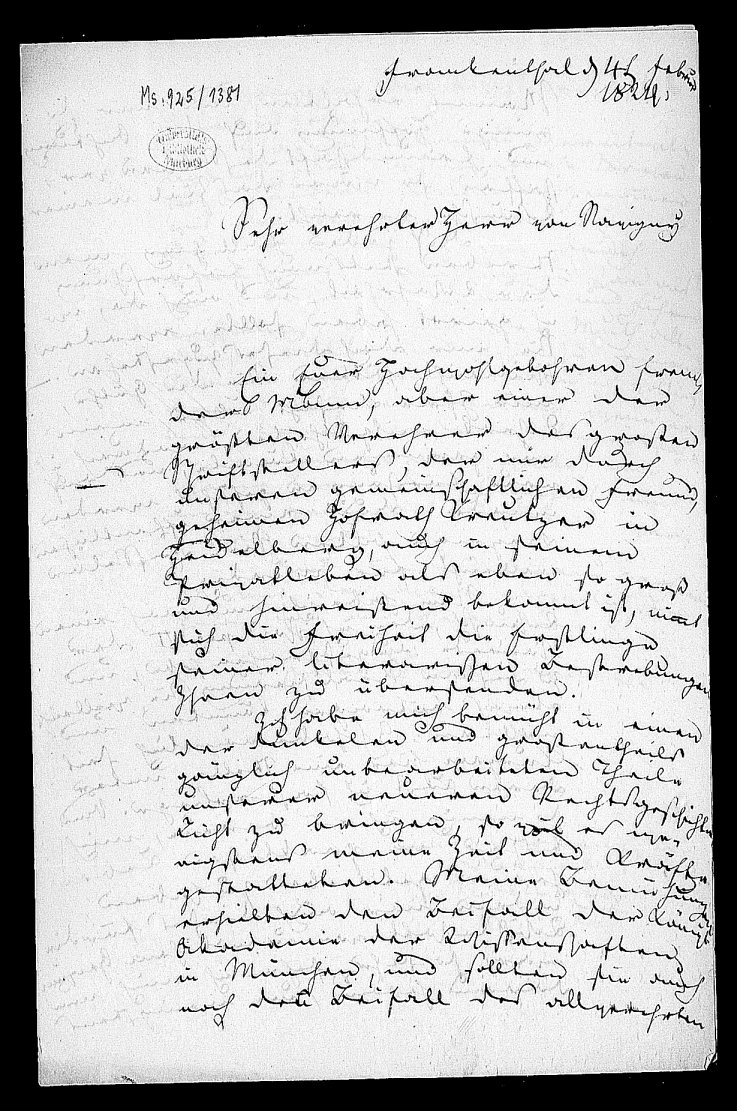 Frankenthal d 4t Febru
1824.
Ms. 925/1381
Universitäts-
Bibliothek
Marburg
Sehr verehrter Herr von Savigny
Ein Euer Hochwohlgebohren frem-
der Mann, aber einer der
größten Verehrer des großen
Schriftstellers, der mir durch
unseren gemeinschaftlichen Freund,
geheimen Hofrath Creutzer in
Heidelberg, auch in seinem
Privatleben als eben so groß
und hinreisend bekannt ist, nimt
sich die Freiheit die Erstlinge
seiner literarischen Bestrebungen
Ihnen zu übersenden.
Ich habe mich bemüht in einen
der dunkelen und großentheils
gänzlich unbearbeiteten Theile
unserer neueren Rechtsgeschichte
Licht zu bringen, so viel es we-
nigstens meine Zeit und Kräfte
gestatteten. Meine Bemühungen
erhielten den Beifall der Königl
Akademie der Wissenschaften
in München, und sollten sie auch
noch den Beifall des allverehrten